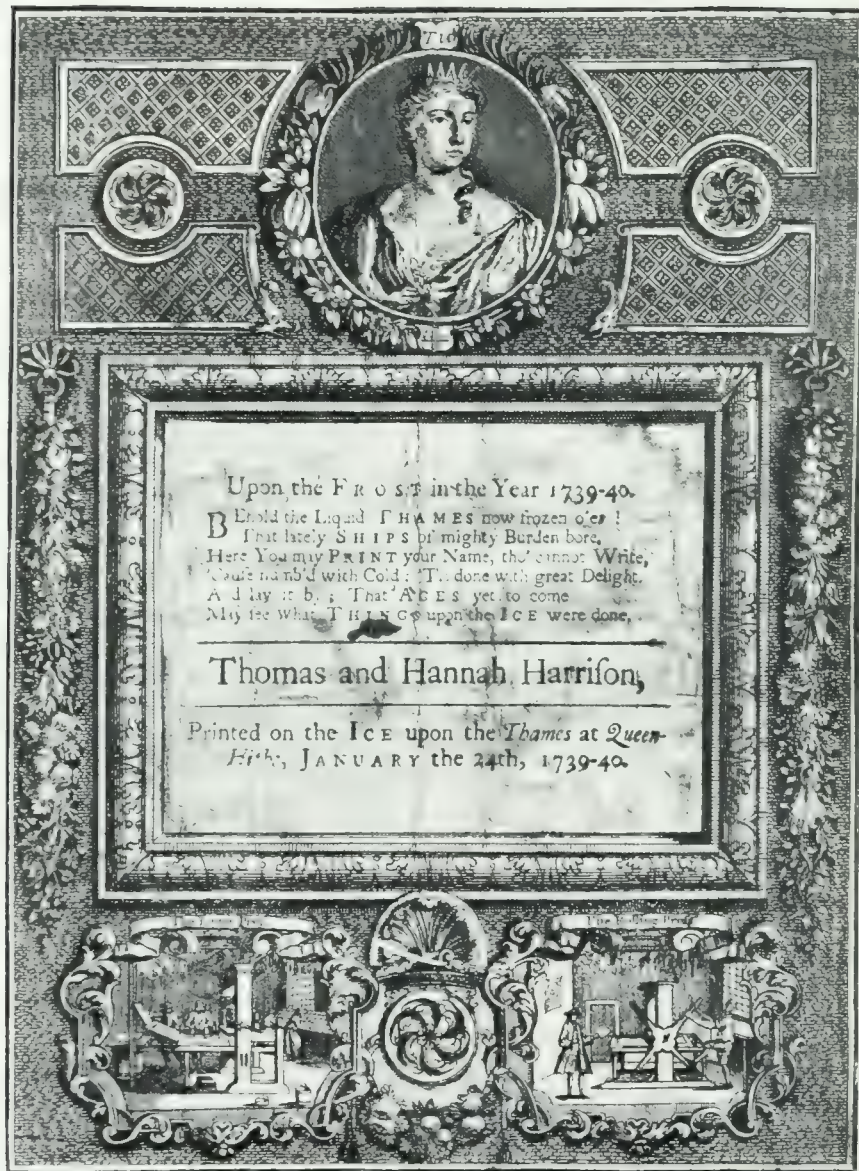 Upon the FROST in the Year 1739-40.
BEhold the Liquid THAMES now frozen o'er !
That lately SHIPS of mighty Burden bore,
Here You may PRINT your Name, tho' cannot Write,
'Cause numb'd with Cold : 'Tis done with great Delight.
And lay it by ; That AGES yet to come
May see what THINGS upon the ICE were done.
Thomas and Hannah Harriſon,
Printed on the ICE upon the Thames at Queen-
Hithe, JANUARY the 24th, 1739-40.
The Rolling Press